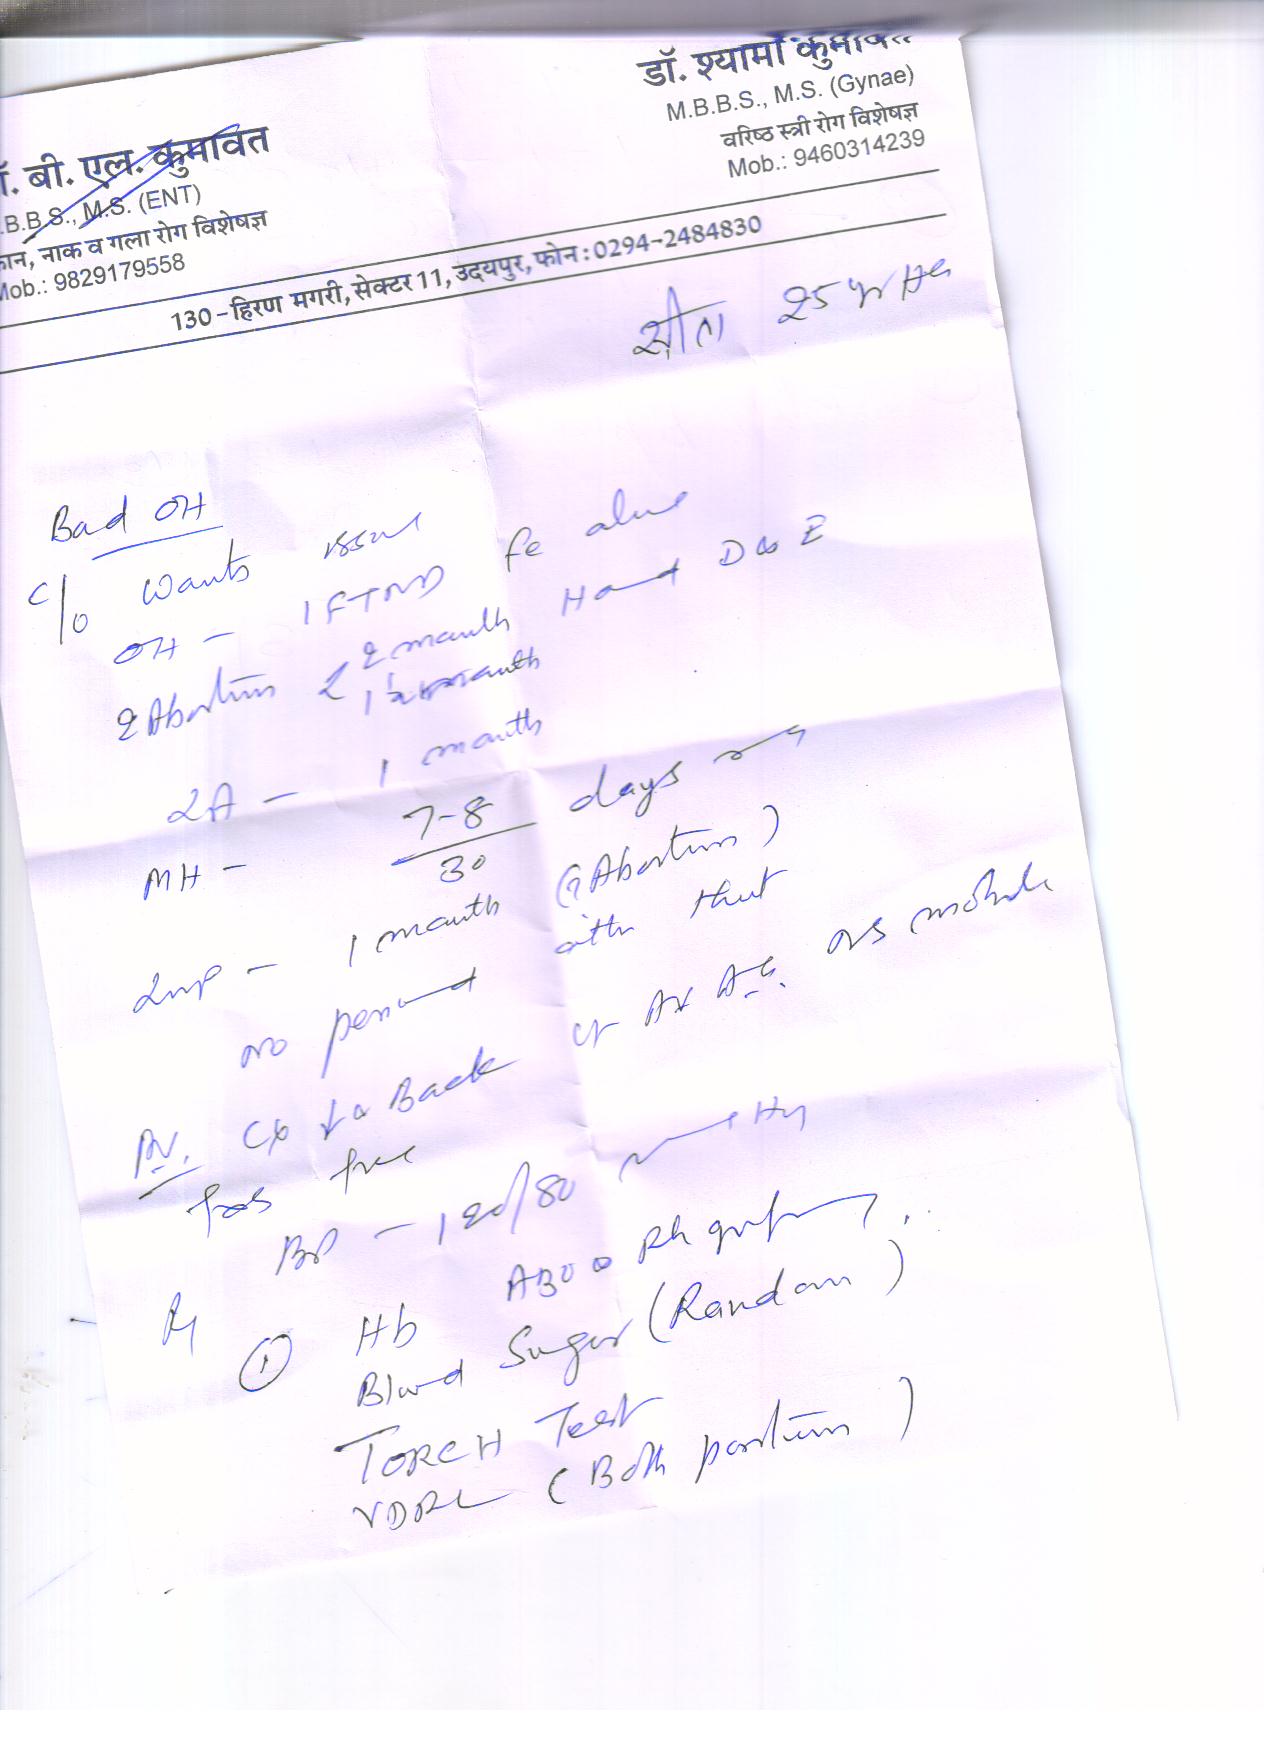 डॉ. श्यामा कुमावत
M.B.B.S., M.S. (Gynae)
वरिष्ठ स्त्री रोग विशेषज्ञ
Mob.: 9460314239
बी. एल. कुमावत
.B.B.S., M.S. (ENT)
कान, नाक व गला रोग विशेषज्ञ
Mob.: 9829179558
130 - हिरण मगरी, सेक्टर 11, उदयपुर, फोन : 0294-2484830
सीता 25 yr
Bad OH
c/o wants issue
OH - 1 FTND fe alive
2 Abortion 2 month H D & E
1 1/2 month
LA - 1 month
MH - 7-8/30 days
LMP - 1 month (Abortion)
no period after that
PV. Cx Back Ut AV mobile
free
BP - 120/80
Rx
① Hb ABO Rh grouping
Blood Sugar (Random)
TORCH Test
VDRL (Both partners)